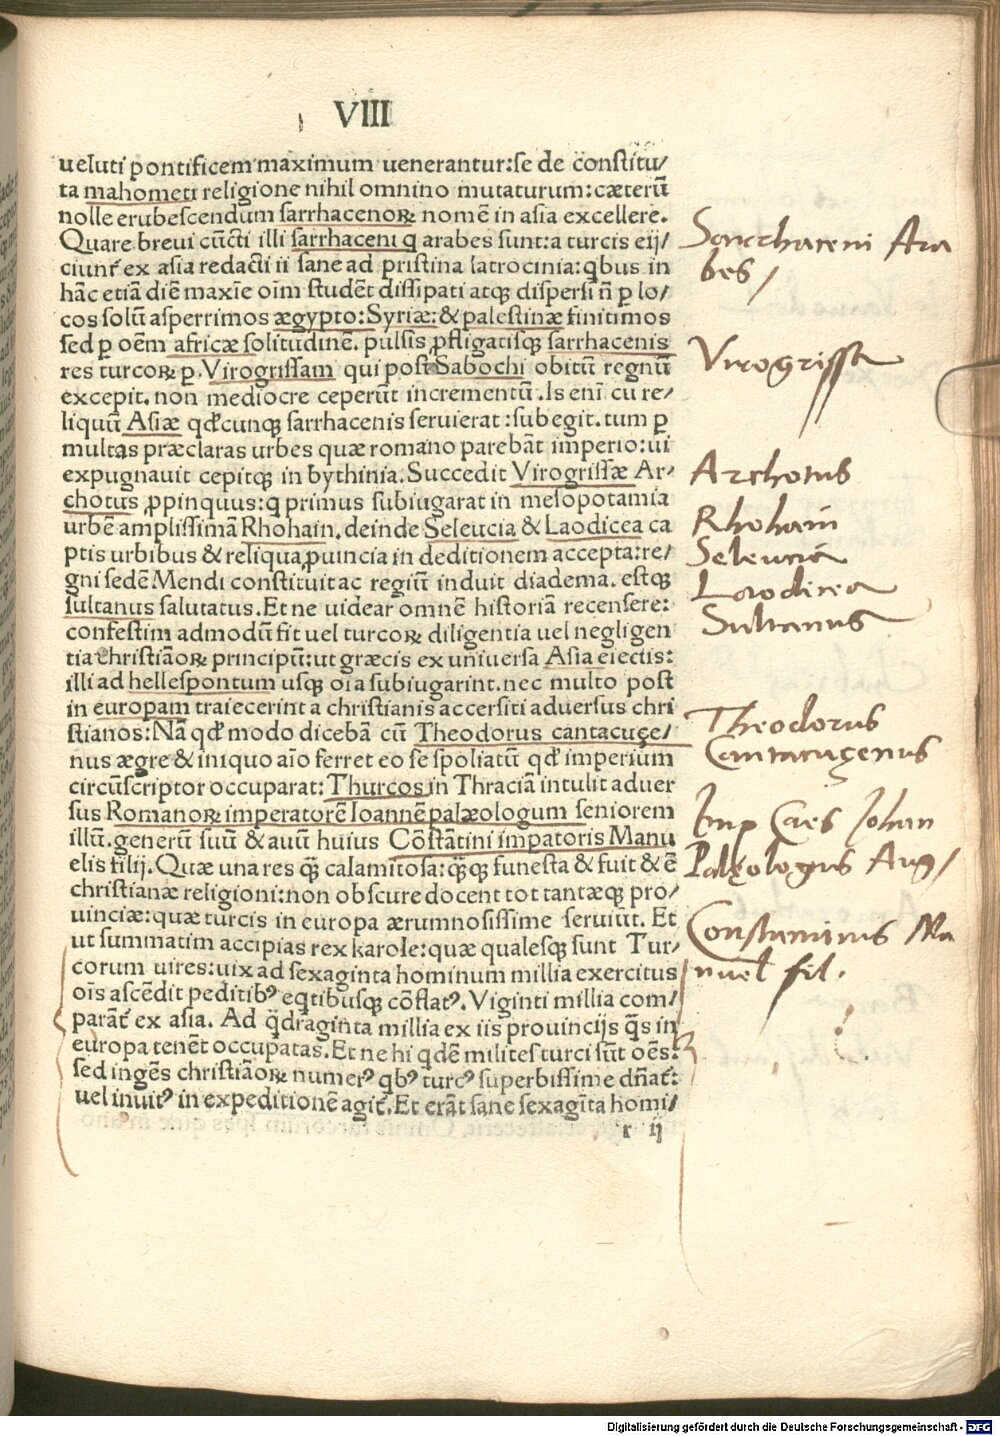 VIII
ueluti pontificem maximum uenerantur:se de constitu/
ta mahometi religione nihil omnino mutaturum:cæterũ
nolle erubescendum sarrhacenoꝝ nomẽ in asia excellere.
Quare breui cũcti illi sarrhaceni q arabes sunt:a turcis eij/
ciunt̃ ex asia redacti ii sane ad pristina latrocinia:qbus in
hãc etiã diẽ maxĩe oĩm studẽt dissipati atqꝫ dispersi n̄ ꝑ lo/
cos solũ asperrimos ægypto:Syriæ:& palestinæ finitimos
sed ꝑ oẽm africæ solitudinẽ. pulsis ꝓfligatisqꝫ sarrhacenis
res turcoꝝ ꝑ Virogrissam qui post Sabochi obitũ regnũ
excepit. non mediocre ceperũt incrementũ. Is eni cũ re/
liquũ Asiæ qđcunqꝫ sarrhacenis seruierat:subegit. tum ꝑ
multas præclaras urbes quæ romano parebãt imperio:ui
expugnauit cepitqꝫ in bythinia. Succedit Virogrissæ Ar/
chotus ꝓpinquus:q primus subiugarat in mesopotamia
urbẽ amplissimã Rhohain. deinde Seleucia & Laodicea ca
ptis urbibus & reliqua ꝓuincia in deditionem accepta:re/
gni sedẽ Mendi constituit ac regiũ induit diadema. estqꝫ
sultanus salutatus. Et ne uidear omnẽ historiã recensere:
confestim admodũ fit uel turcoꝝ diligentia uel negligen
tia christiãoꝝ principũ:ut græcis ex uniuersa Asia eiectis:
illi ad hellespontum usqꝫ oĩa subiugarint. nec multo post
in europam traiecerint a christianis accersiti aduersus chri
stianos: Nã qđ modo dicebã cũ Theodorus cantacuçe/
nus ægre & iniquo aĩo ferret eo se spoliatũ qđ imperium
circũscriptor occuparat: Thurcos in Thraciã intulit aduer
sus Romanoꝝ imperatorẽ Ioannẽ palæologum seniorem
illũ. generũ suũ & auũ huius Cõstãtini impatoris Manu
elis filij. Quæ una res qꝫ̃ calamitosa:qꝫ̃qꝫ funesta & fuit & ẽ
christianæ religioni:non obscure docent tot tantæqꝫ pro/
uinciæ:quæ turcis in europa ærumnosissime seruiũt. Et
ut summatim accipias rex karole:quæ qualesqꝫ sunt Tur/
corum uires:uix ad sexaginta hominum millia exercitus
oĩs ascẽdit peditibꝰ eqtibusqꝫ cõflatꝰ. Viginti millia com/
parãt̃ ex asia. Ad q̃draginta millia ex iis prouincijs q̃s in
europa tenẽt occupatas. Et ne hi qdẽ milites turci sũt oẽs:
sed ingẽs christiãoꝝ numerꝰ qbꝰ turcꝰ superbissime dñat̃:
uel inuitꝰ in expeditionẽ agit̃. Et erãt sane sexagĩta homi/
r ij
Sarrhaceni Ara
bes/
Virogrissa
Archotus
Rhohain
Seleucia
Laodicea
Sultanus
Theodorus
Cantacuçenus
Imp Caes Johan
Palęologus Aug/
Constantinus Ma
nuel fil.
Digitalisierung gefördert durch die Deutsche Forschungsgemeinschaft - DFG